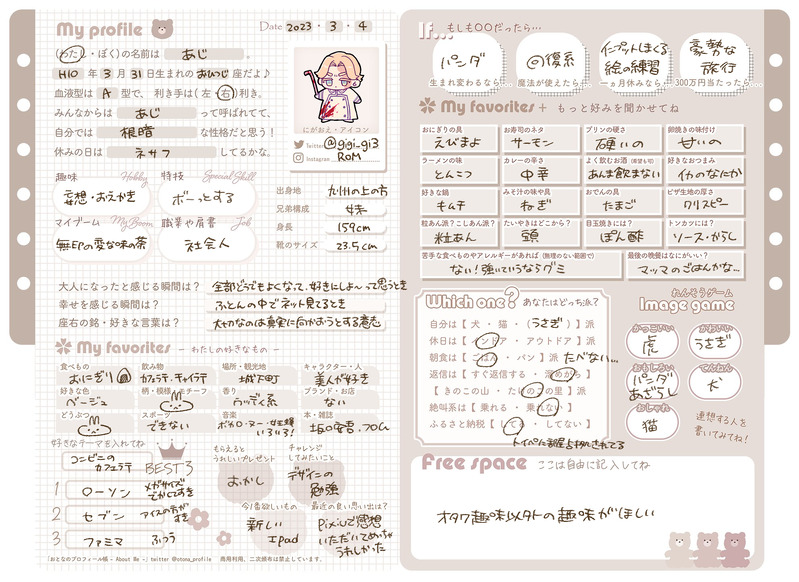 My profile
Date 2023・3・4
(わたし・ぼく)の名前は あじ。
H10 年 3 月 31 日生まれの おひつじ 座だよ♪
血液型は A 型で、 利き手は( 左・右)利き。
みんなからは あじ って呼ばれてて、
自分では 根暗 な性格だと思う!
休みの日は ネサフ してるかな。
にがおえ・アイコン
Twitter @gigi_gi3
Instagram ROM
趣味 Hobby
妄想・おえかき
特技 Special Skill
ボーっとする
マイブーム My Boom
無EPの変な味の茶
職業や肩書 Job
社会人
出身地 九州の上の方
兄弟構成 姉妹
身長 159cm
靴のサイズ 23.5cm
大人になったと感じる瞬間は? 全部どうでもよくなって、好きにしよ〜って思うとき
幸せを感じる瞬間は? ふとんの中でネット見てるとき
座右の銘・好きな言葉は? 大切なのは真実に向かおうとする意志
My favorites − わたしの好きなもの −
食べもの おにぎり
飲みもの カフェラテ、チャイラテ
場所・観光地 城下町
キャラクター・人 美人が好き
好きな色 ベージュ
柄・模様・モチーフ
香り ウッディ系
ブランド・お店 ない
どうぶつ
スポーツ できない
音楽 ボカロ・ヌー・女王蜂 いろいろ!
本・雑誌 坂口安吾、フロム
好きなテーマを入れてね
コンビニの
カフェラテ
BEST3
1 ローソン メガサイズ でかくてすき
2 セブン アイスの方が すき
3 ファミマ ふつう
もらえると
うれしいプレゼント
おかし
チャレンジ
してみたいこと
デザインの
勉強
今1番欲しいもの
新しい
Ipad
最近の良い思い出は?
Pixivで感想
いただいてめっちゃ
うれしかった
「おとなのプロフィール帳 - About Me -」twitter @otona_profile 商用利用、二次頒布は禁止しています。
If... もしも〇〇だったら…
パンダ
生まれ変わるなら…
回復系
魔法が使えたら…
インプットしまくる
絵の練習
一ヵ月休みなら…
豪勢な
旅行
300万円当たったら…
My favorites+ もっと好みを聞かせてね
おにぎりの具 えびまよ
お寿司のネタ サーモン
プリンの硬さ 硬いの
卵焼きの味付け 甘いの
ラーメンの味 とんこつ
カレーの辛さ 中辛
よく飲むお酒(希望も可) あんま飲まない
好きなおつまみ イカのなにか
好きな鍋 キムチ
みそ汁の味や具 ねぎ
おでんの具 たまご
ピザ生地の厚さ クリスピー
粒あん派?こしあん派? 粒あん
たいやきはどこから? 頭
目玉焼きには? ぽん酢
トンカツには? ソース・からし
苦手な食べものやアレルギーがあれば(無理のない範囲で) ない!強いていうならグミ
最後の晩餐はなにがいい? マッマのごはんかな…
Which one? あなたはどっち派?
自分は【 犬 ・ 猫 ・(うさぎ)】派
休日は【 インドア ・ アウトドア 】派
朝食は【 ごはん ・ パン 】派 たべない…
返信は【 すぐ返信する ・ 溜めがち 】
【 きのこの山 ・ たけのこの里 】派
絶叫系は【 乗れる ・ 乗れない 】
ふるさと納税【 してる ・ してない 】
トイペに部屋占領されてる
れんそうゲーム
Image game
かっこいい 虎
かわいい うさぎ
おもしろい パンダ あざらし
てんねん 犬
おしゃれ 猫
連想する人を
書いてみてね!
Free space ここは自由に記入してね
オタク趣味以外の趣味がほしい